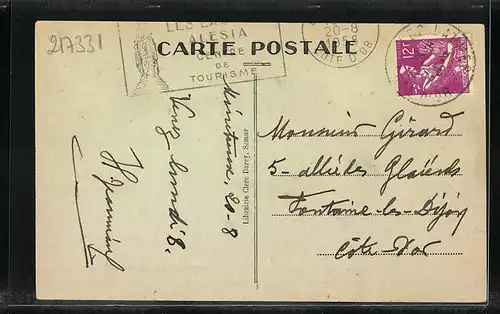 217331
LES
ALESIA
CENTRE
DE
TOURISME
20-8
COTE D'OR
12F
CARTE POSTALE
Librairie Clerc Darcy, Semur
20-8
Venez lundi 8.
Monsieur Girard
5 - allée des
Fontaine-les-Dijon
Côte d'or